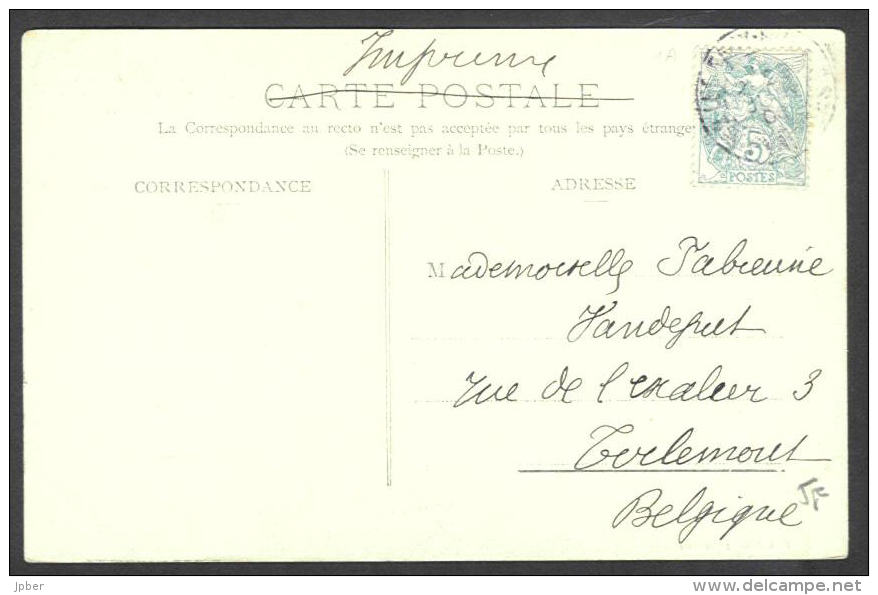 Imprimé
CARTE POSTALE
La Correspondance au recto n'est pas acceptée par tous les pays étrange
(Se renseigner à la Poste.)
CORRESPONDANCE
ADRESSE
5
POSTES
Mademoiselle Fabienne
Vandeput
rue de l'escalier 3
Tirlemont
Belgique
5F
jpber
www.delcampe.net